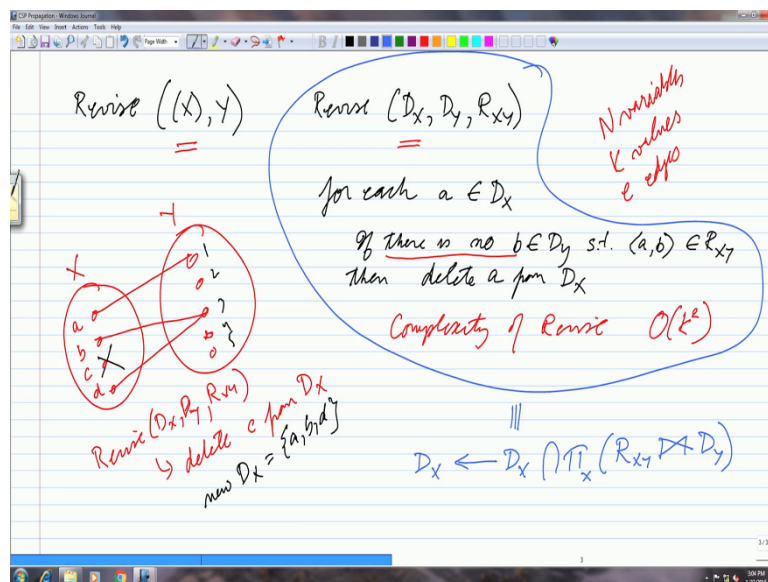 CSP Propagation - Windows Journal
File Edit View Insert Actions Tools Help
Page Width
B I
Revise ((X), Y)
Revise (D_X, D_Y, R_XY)
N variables
K values
e edges
for each a ∈ D_X
If there is no b ∈ D_Y s.t. (a,b) ∈ R_XY
then delete a from D_X
Complexity of Revise O(k²)
|||
D_X ← D_X ∩ Π_x (R_XY ⋈ D_Y)
X
Y
a
b
c
d
1
2
3
Revise (D_X, D_Y, R_XY)
↳ delete c from D_X
new D_X = {a,b,d}
3
3:04 PM